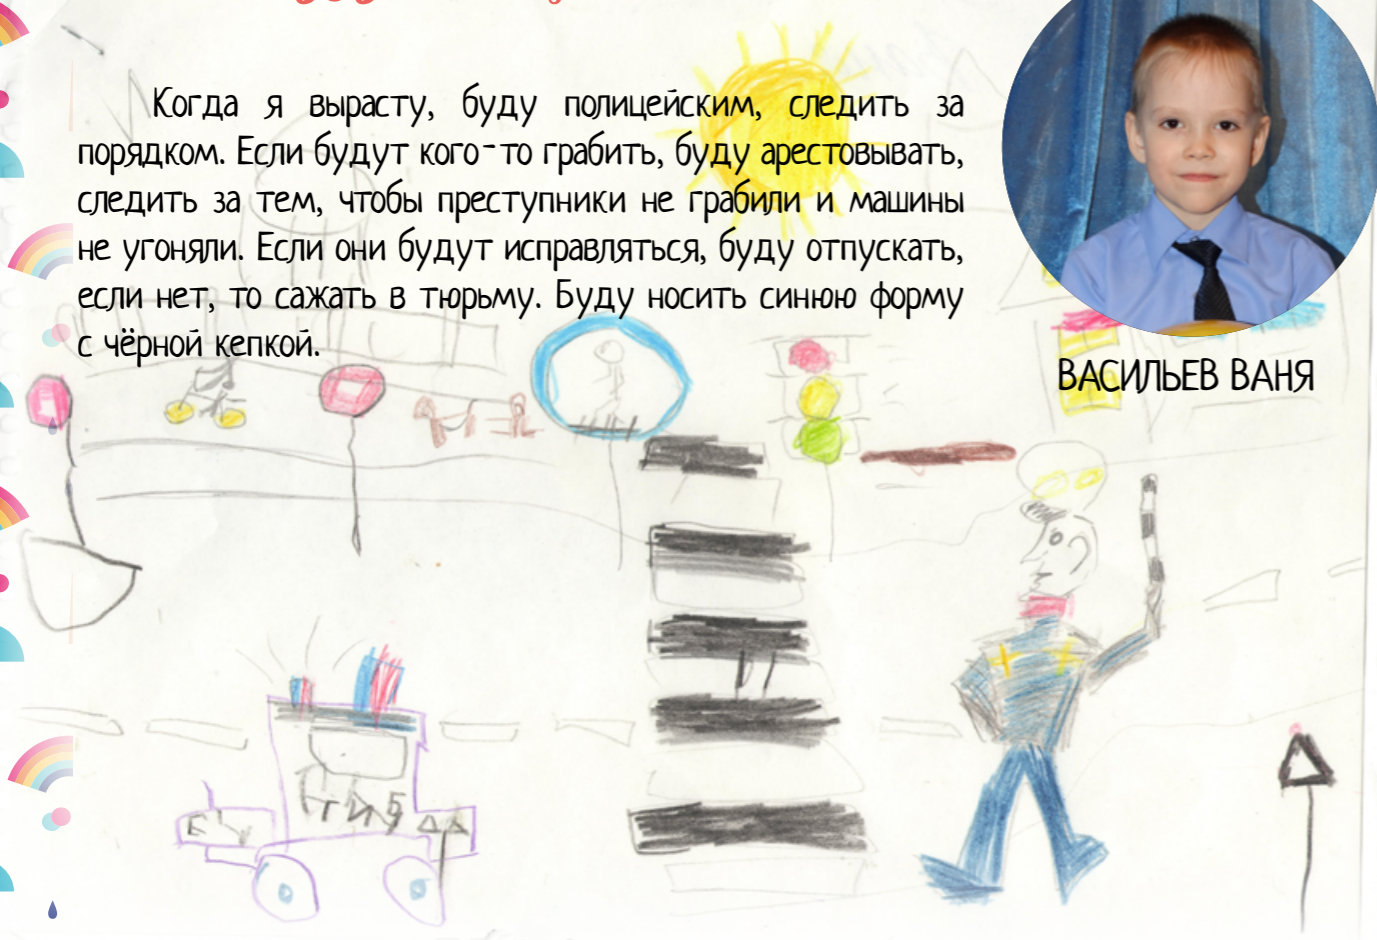 Когда я вырасту, буду полицейским, следить за
порядком. Если будут кого-то грабить, буду арестовывать,
следить за тем, чтобы преступники не грабили и машины
не угоняли. Если они будут исправляться, буду отпускать,
если нет, то сажать в тюрьму. Буду носить синюю форму
с чёрной кепкой.
ВАСИЛЬЕВ ВАНЯ